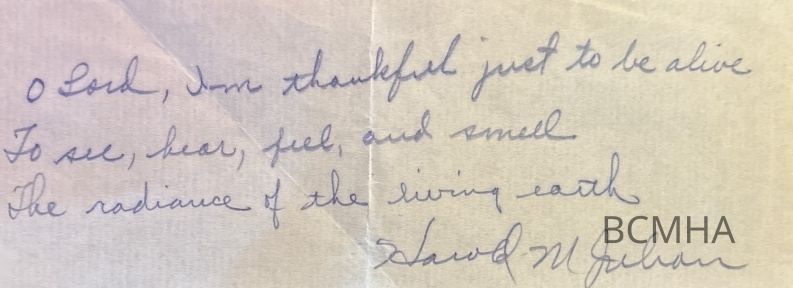 O Lord, I'm thankful just to be alive
To see, hear, feel, and smell
The radiance of the living earth
BCMHA
Harold M Julian